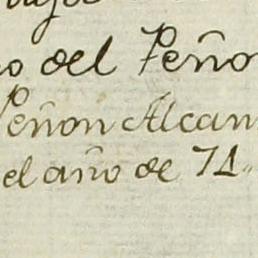 o del Peño
Peñon Alcan
el año de 71.